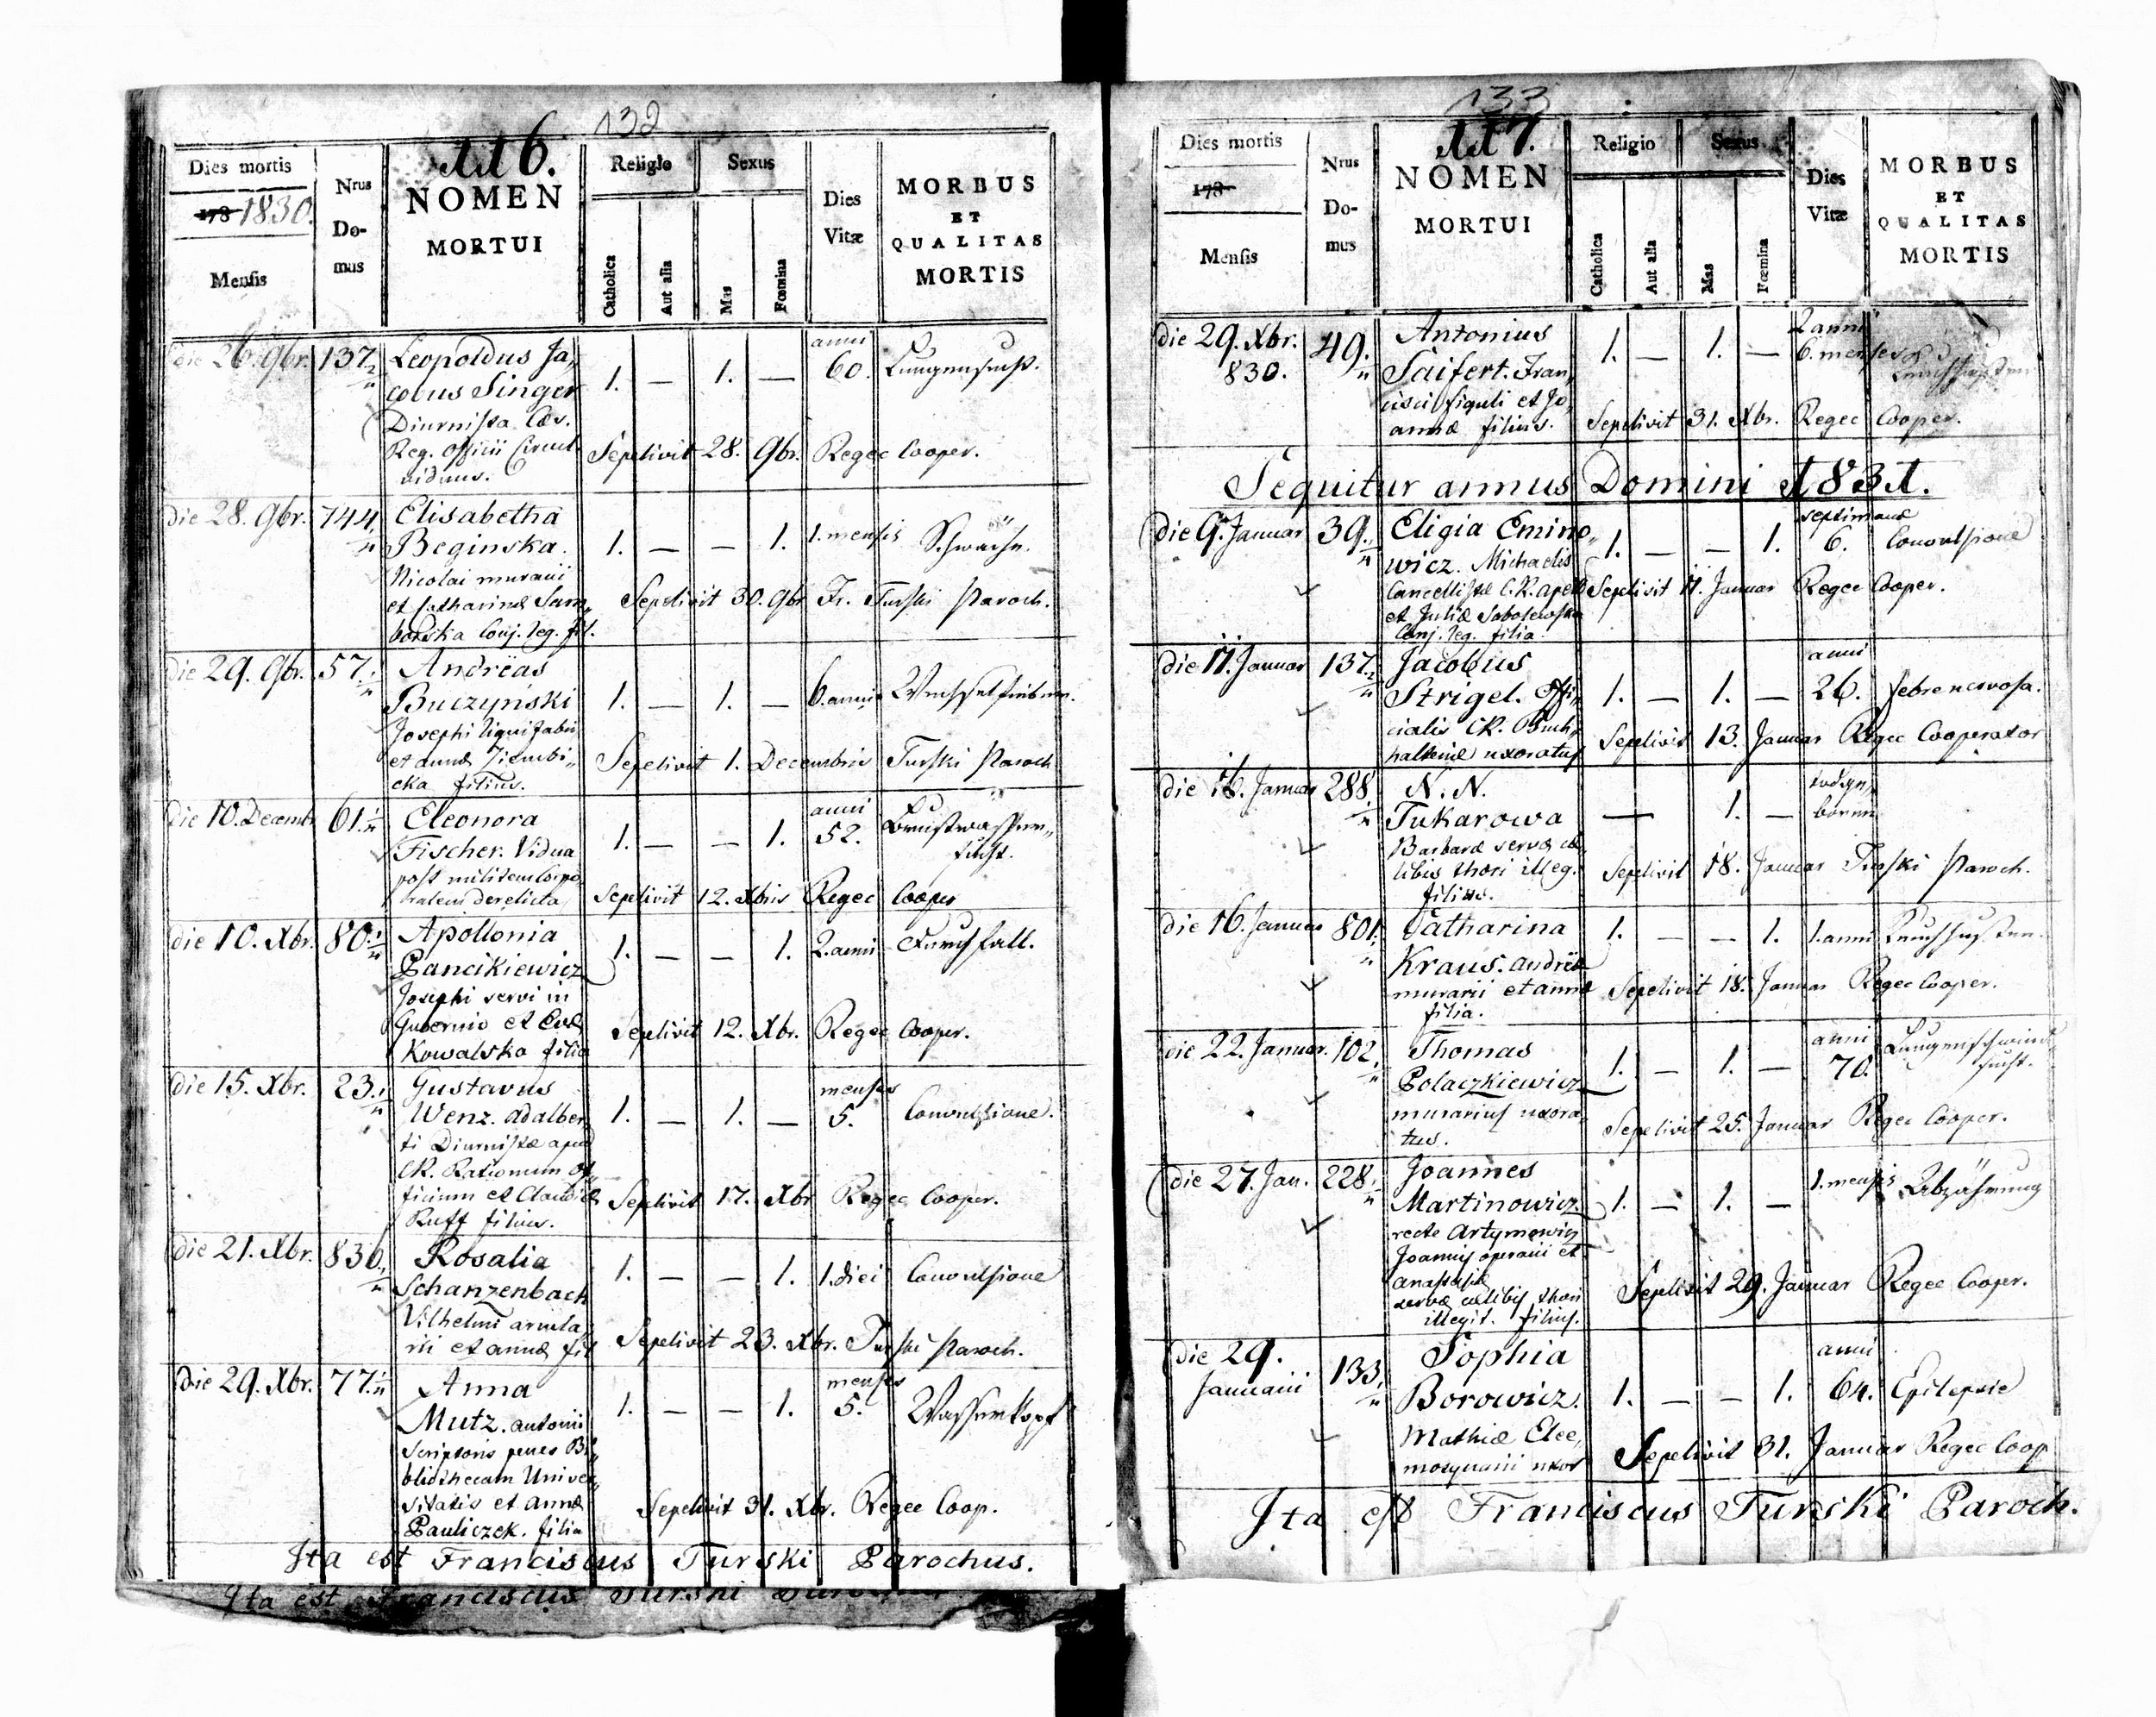 132
116.
Dies mortis
178 1830.
Mensis
Nrus
Do-
mus
NOMEN
MORTUI
Religio
Catholica
Aut alia
Sexus
Mas
Fœmina
Dies
Vitæ
MORBUS
ET
QUALITAS
MORTIS
die 26. 9br. 137 Leopoldus Ja,,
cobus Singer
Diurnista Cæs.
Reg. officii Circul.
viduus.
1. — 1. — anni
60. Lungensucht.
Sepelivit 28. 9br. Regec Cooper.
die 28. 9br. 744 Elisabetha
Beginska.
Nicolai murarii
et Catharinæ Sam,,
borska Conj. leg. fil.
1. — — 1. 1. mensis Schwäche.
Sepelivit 30. 9br. Fr. Turski Paroch.
die 29. 9br. 57. Andreas
Buczynski
Josephi lignifabri
et annæ Ziembi,,
cka filius.
1. — 1. — 6. anni Wechselfieber.
Sepelivit 1. Decembris Turski Paroch
die 10. Decembr. 61. Eleonora
Fischer. Vidua
post militem Corpo,
ralem derelicta
1. — — 1. anni
52. Brustwasser,,
sucht.
Sepelivit 12. Xbris Regec Cooper
die 10. Xbr. 80. Apollonia
Pancikiewicz
Josephi servi in
Gubernio et Evæ
Kowalska filia
1. — — 1. 2. anni Durchfall.
Sepelivit 12. Xbr. Regec Cooper.
die 15. Xbr. 23. Gustavus
Wenz. Adalber,
ti Diurnistæ apud
CR. Rationum Of,
ficium et Claudiæ
Ruff filius.
1. — 1. — menses
5. Convulsione.
Sepelivit 17. Xbr Regec Cooper.
die 21. Xbr. 830. Rosalia
Schanzenbach
Vilhelmi armula,
rii et annæ fil
1. — — 1. 1. diei Convulsione
Sepelivit 23. Xbr. Turski Paroch.
die 29. Xbr. 77. Anna
Mutz. antonii
Scriptoris penes Bi,,
bliothecam Univer,,
sitatis et annæ
Pauliczek. filia
1. — — 1. menses
5. Wasserkopf
Sepelivit 31. Xbr. Regec Coop.
Ita est Franciscus Turski Parochus.
Ita est Franciscus Turski
133
117.
Dies mortis
178
Mensis
Nrus
Do-
mus
NOMEN
MORTUI
Religio
Catholica
Aut alia
Sexus
Mas
Fœmina
Dies
Vitæ
MORBUS
ET
QUALITAS
MORTIS
die 29. Xbr. 49. Antonius
830. Saifert. Fran,
cisci figuli et Jo,
annæ filius.
1. — 1. — 2 anni
6. menses Keuchhusten
Sepelivit 31. Xbr. Regec Cooper.
Sequitur annus Domini 1831.
die 9. Januar 39. Eligia Emino,,
wicz. Michaelis
Cancellistæ C.R. apell
et Juliæ Sobolewska
Conj. leg. filia
1. — — 1. septimanæ
6. Convulsione
Sepelivit 11. Januar Regec Cooper.
die 11. Januar 137. Jacobus
Strigel. Offi,
cialis CR. Buch,
halteriæ uxoratus
1. — 1. — anni
26. febre nervosa.
Sepelivit 13. Januar Regec Cooperator
die 16. Januar 288. N. N.
Tukarowa
Barbaræ servæ cæ,
libis thori illeg.
filius.
— 1. — todtge,,
boren
Sepelivit 18. Januar Turski Paroch.
die 16. Januar 801. Catharina
Kraus. andreæ
murarii et annæ
filia.
1. — — 1. 1. anni Keuchhusten.
Sepelivit 18. Januar Regec Cooper.
die 22. Januar. 102. Thomas
Polaczkiewicz
murarius uxora,
tus.
1. — 1. — anni
70. Lungenschwind,
sucht.
Sepelivit 25. Januar Regec Cooper.
die 27. Jan. 228. Joannes
Martinowicz
recte Artymowicz
Joannis operarii et
anastasiæ
servæ cælibis thori
illegit. filius.
1. — 1. — 1. mensis Abzährung
Sepelivit 29. Januar Regec Cooper.
die 29. 133. Sophia
Januarii Borowicz.
Mathiæ Elee,
mosynarii uxor
1. — — 1. anni
64. Epilepsie
Sepelivit 31. Januar Regec Coop
Ita est Franciscus Turski Paroch.